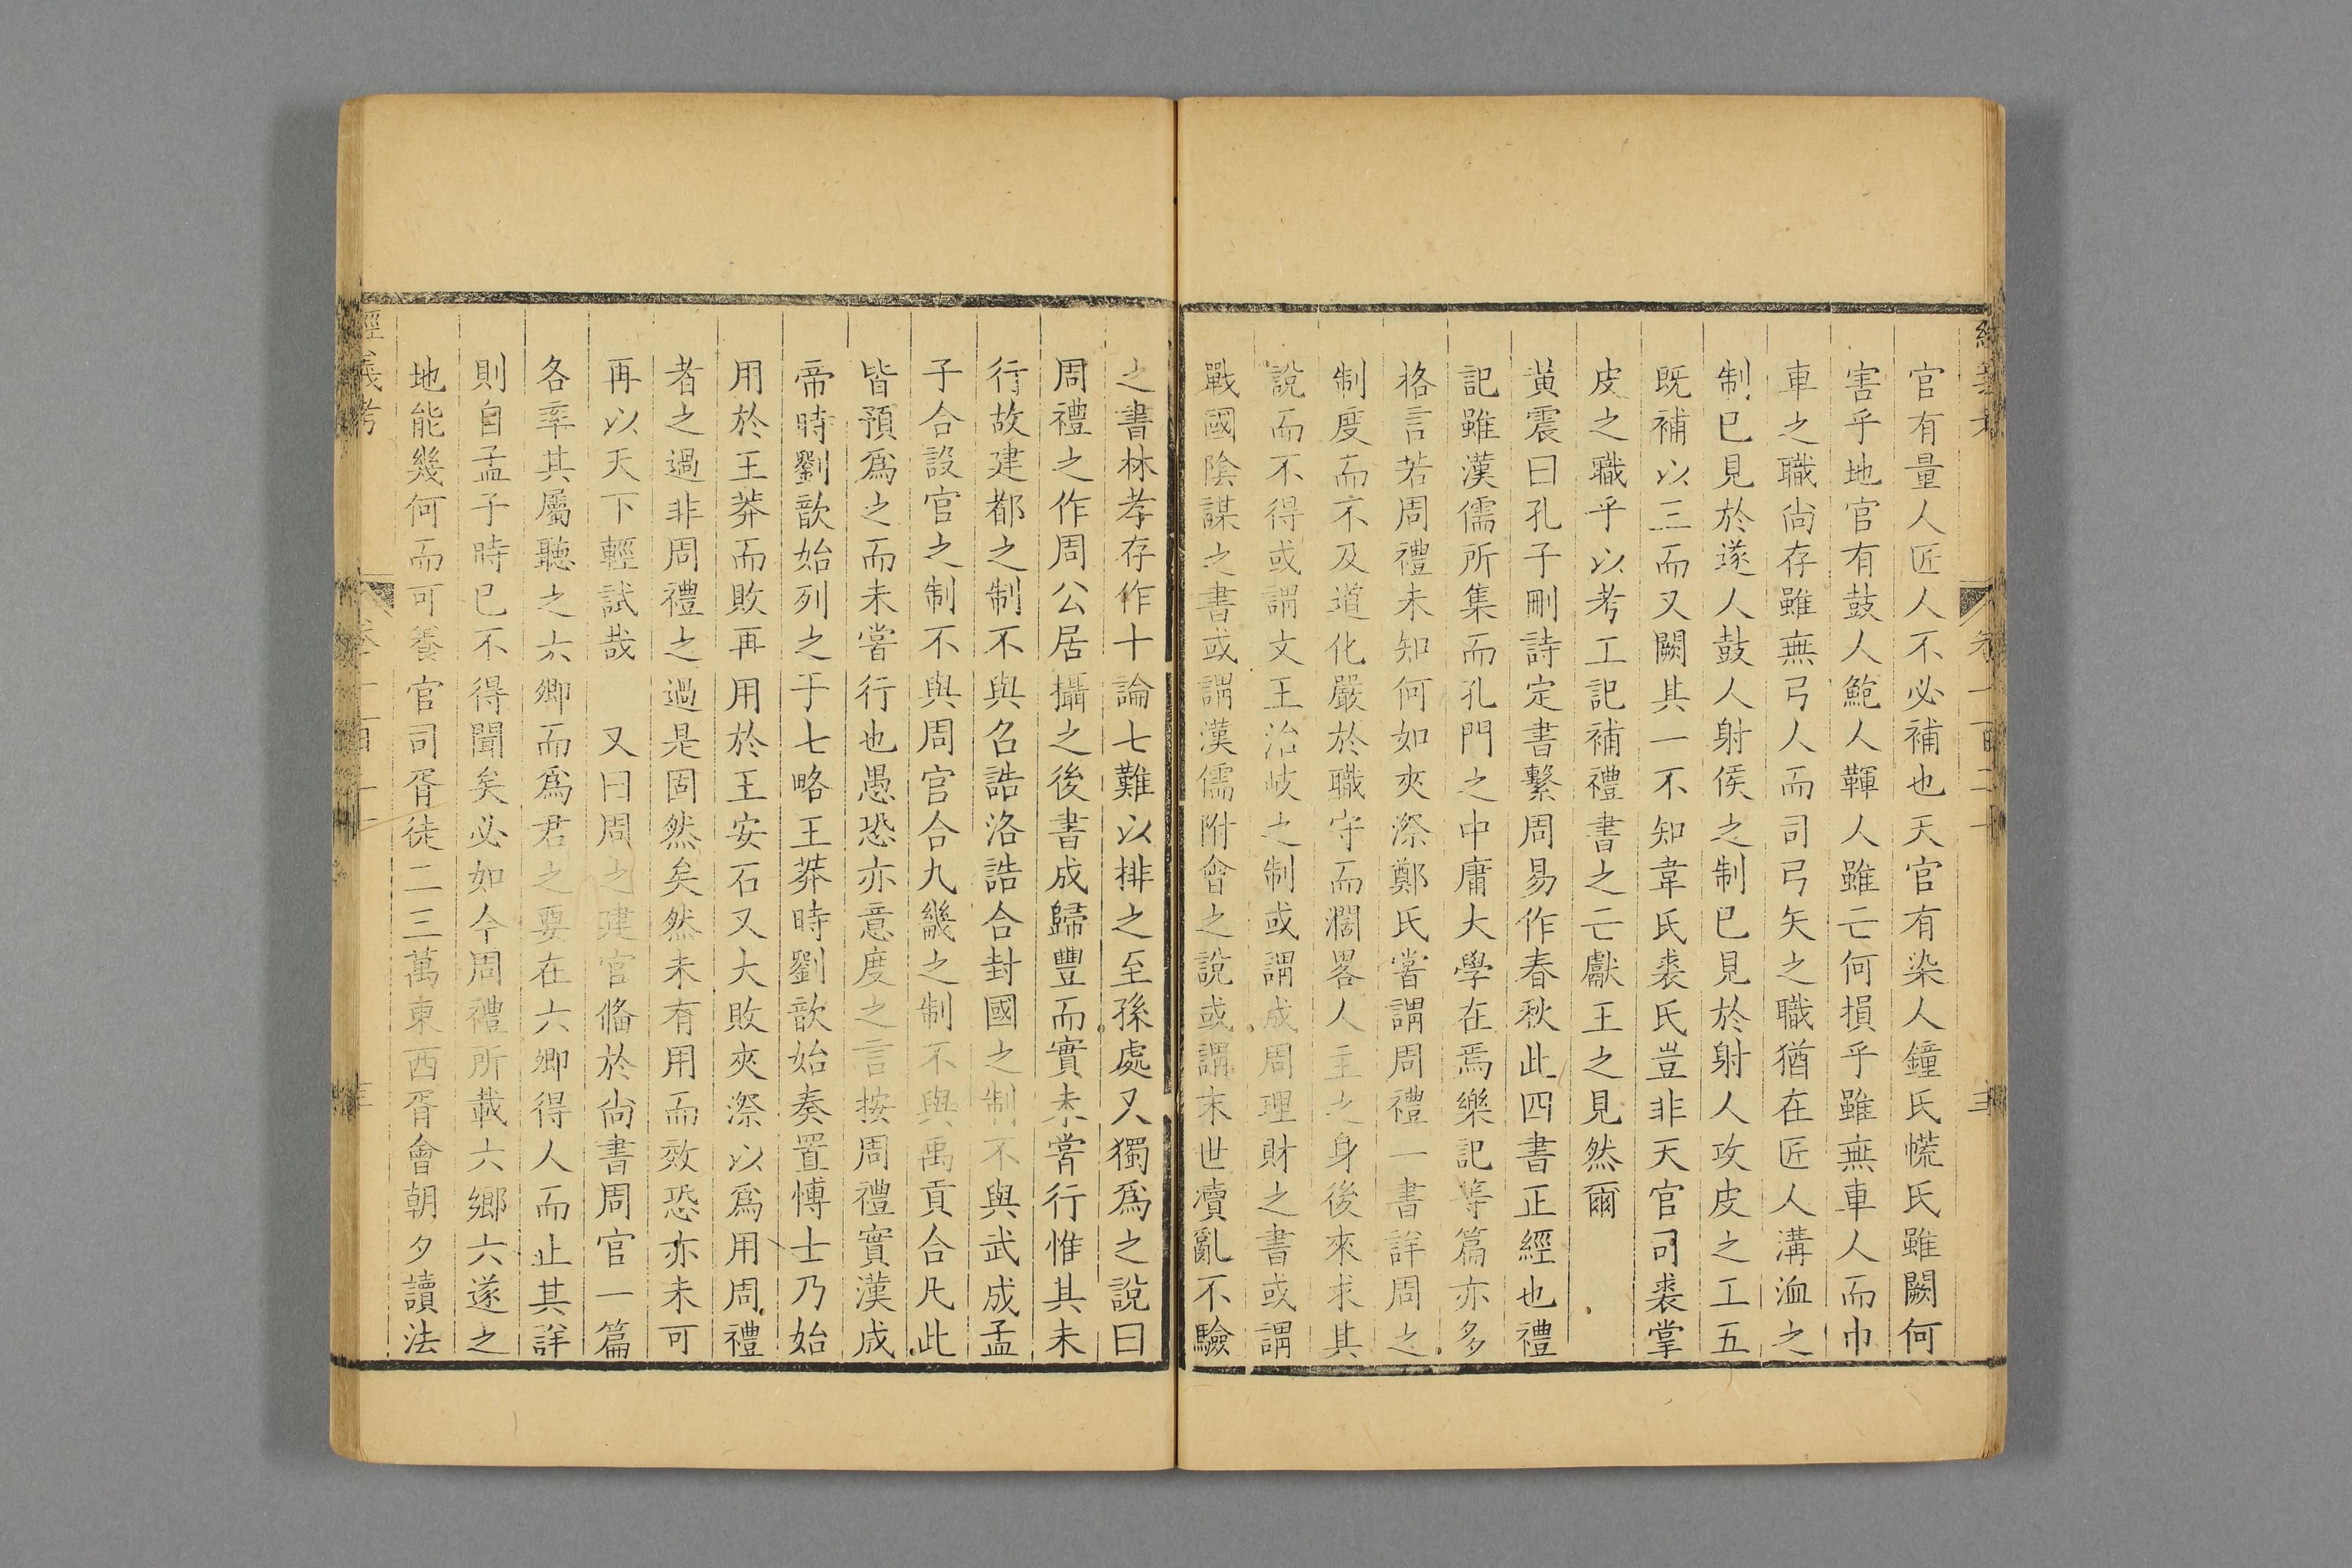 官有量人匠人不必補也天官有染人鐘氏㡛氏雖闕何
害乎地官有鼓人鮑人韗人雖亡何損乎雖無車人而巾
車之職尚存雖無弓人而司弓矢之職猶在匠人溝洫之
制已見於遂人鼓人射侯之制已見於射人攻皮之工五
既補以三而又闕其一不知韋氏裘氏豈非天官司裘掌
皮之職乎以考工記補禮書之亡獻王之見然爾
黃震曰孔子刪詩定書繫周易作春秋此四書正經也禮
記雖漢儒所集而孔門之中庸大學在焉樂記等篇亦多
格言若周禮未知何如夾漈鄭氏嘗謂周禮一書詳周之
制度而不及道化嚴於職守而濶畧人主之身後來求其
說而不得或謂文王治岐之制或謂成周理財之書或謂
戰國陰謀之書或謂漢儒附會之說或謂末世瀆亂不驗
之書林孝存作十論七難以排之至孫處又獨爲之說曰
周禮之作周公居攝之後書成歸豐而實未嘗行惟其未
行故建都之制不與召誥洛誥合封國之制不與武成孟
子合設官之制不與周官合九畿之制不與禹貢合凡此
皆預爲之而未嘗行也愚恐亦意度之言按周禮實漢成
帝時劉歆始列之于七略王莽時劉歆始奏置博士乃始
用於王莽而敗再用於王安石又大敗夾漈以爲用周禮
者之過非周禮之過是固然矣然未有用而效恐亦未可
再以天下輕試哉　又曰周之建官備於尚書周官一篇
各率其屬聽之六卿而爲君之要在六卿得人而止其詳
則自孟子時已不得聞矣必如今周禮所載六鄉六遂之
地能幾何而可養官司胥徒二三萬東西胥會朝夕讀法
經義考